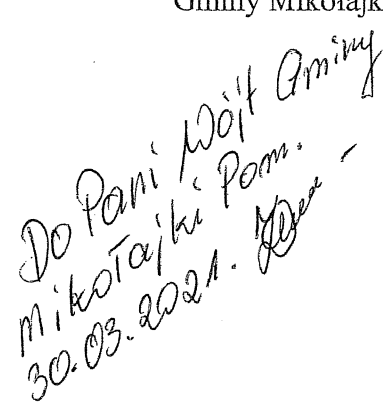 Gminy Mikołajk
Do Pani Wójt Gminy
Mikołajki Pom.
30.03.2021.